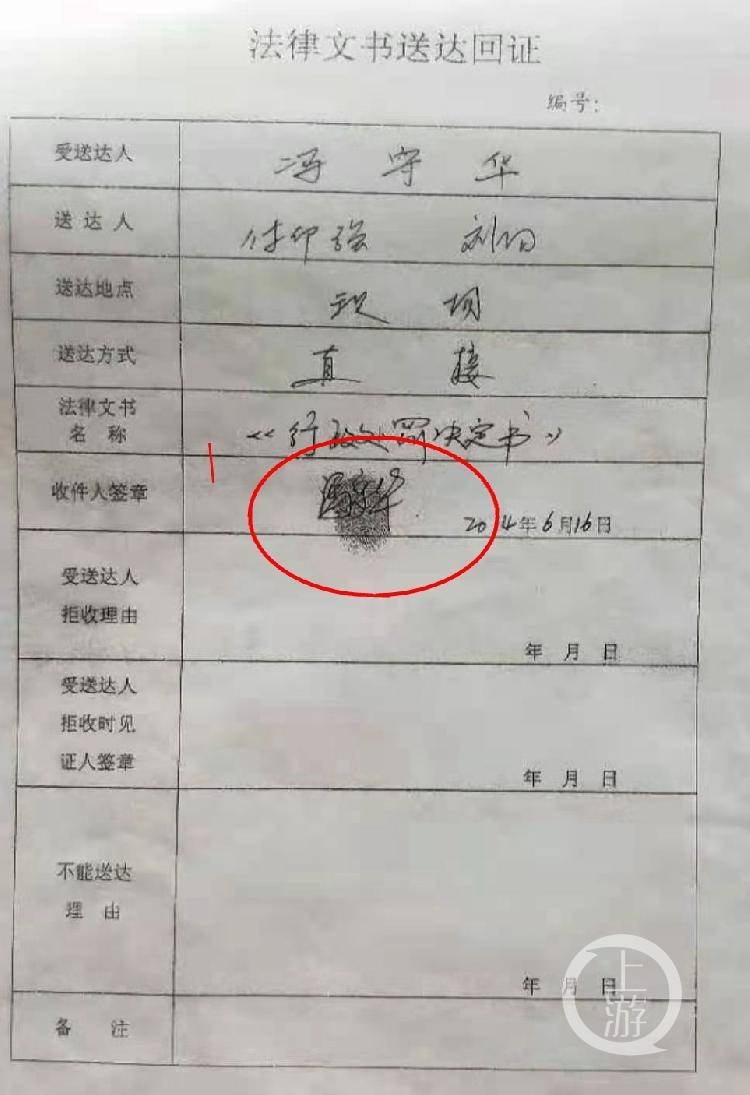 法律文书送达回证
编号：
受送达人 冯守华
送达人 付印强 刘
送达地点 现场
送达方式 直接
法律文书
名称 《行政处罚决定书》
收件人签章 冯守华 2014年6月16日
受送达人
拒收理由
年 月 日
受送达人
拒收时见
证人签章
年 月 日
不能送达
理由
年 月 日
备注
上游